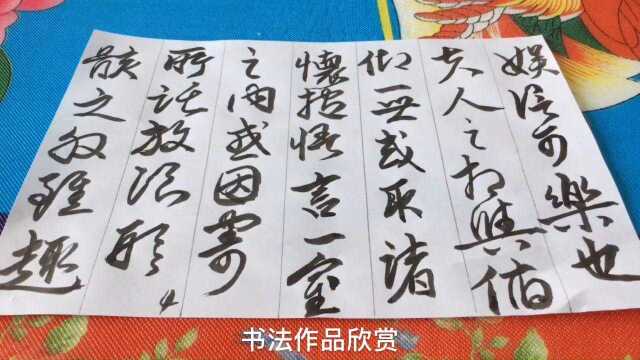 娱信可樂也
夫人之相與俯
仰一世或取諸
懷抱悟言一室
之内或因寄
所託放浪形
骸之外雖趣
书法作品欣赏